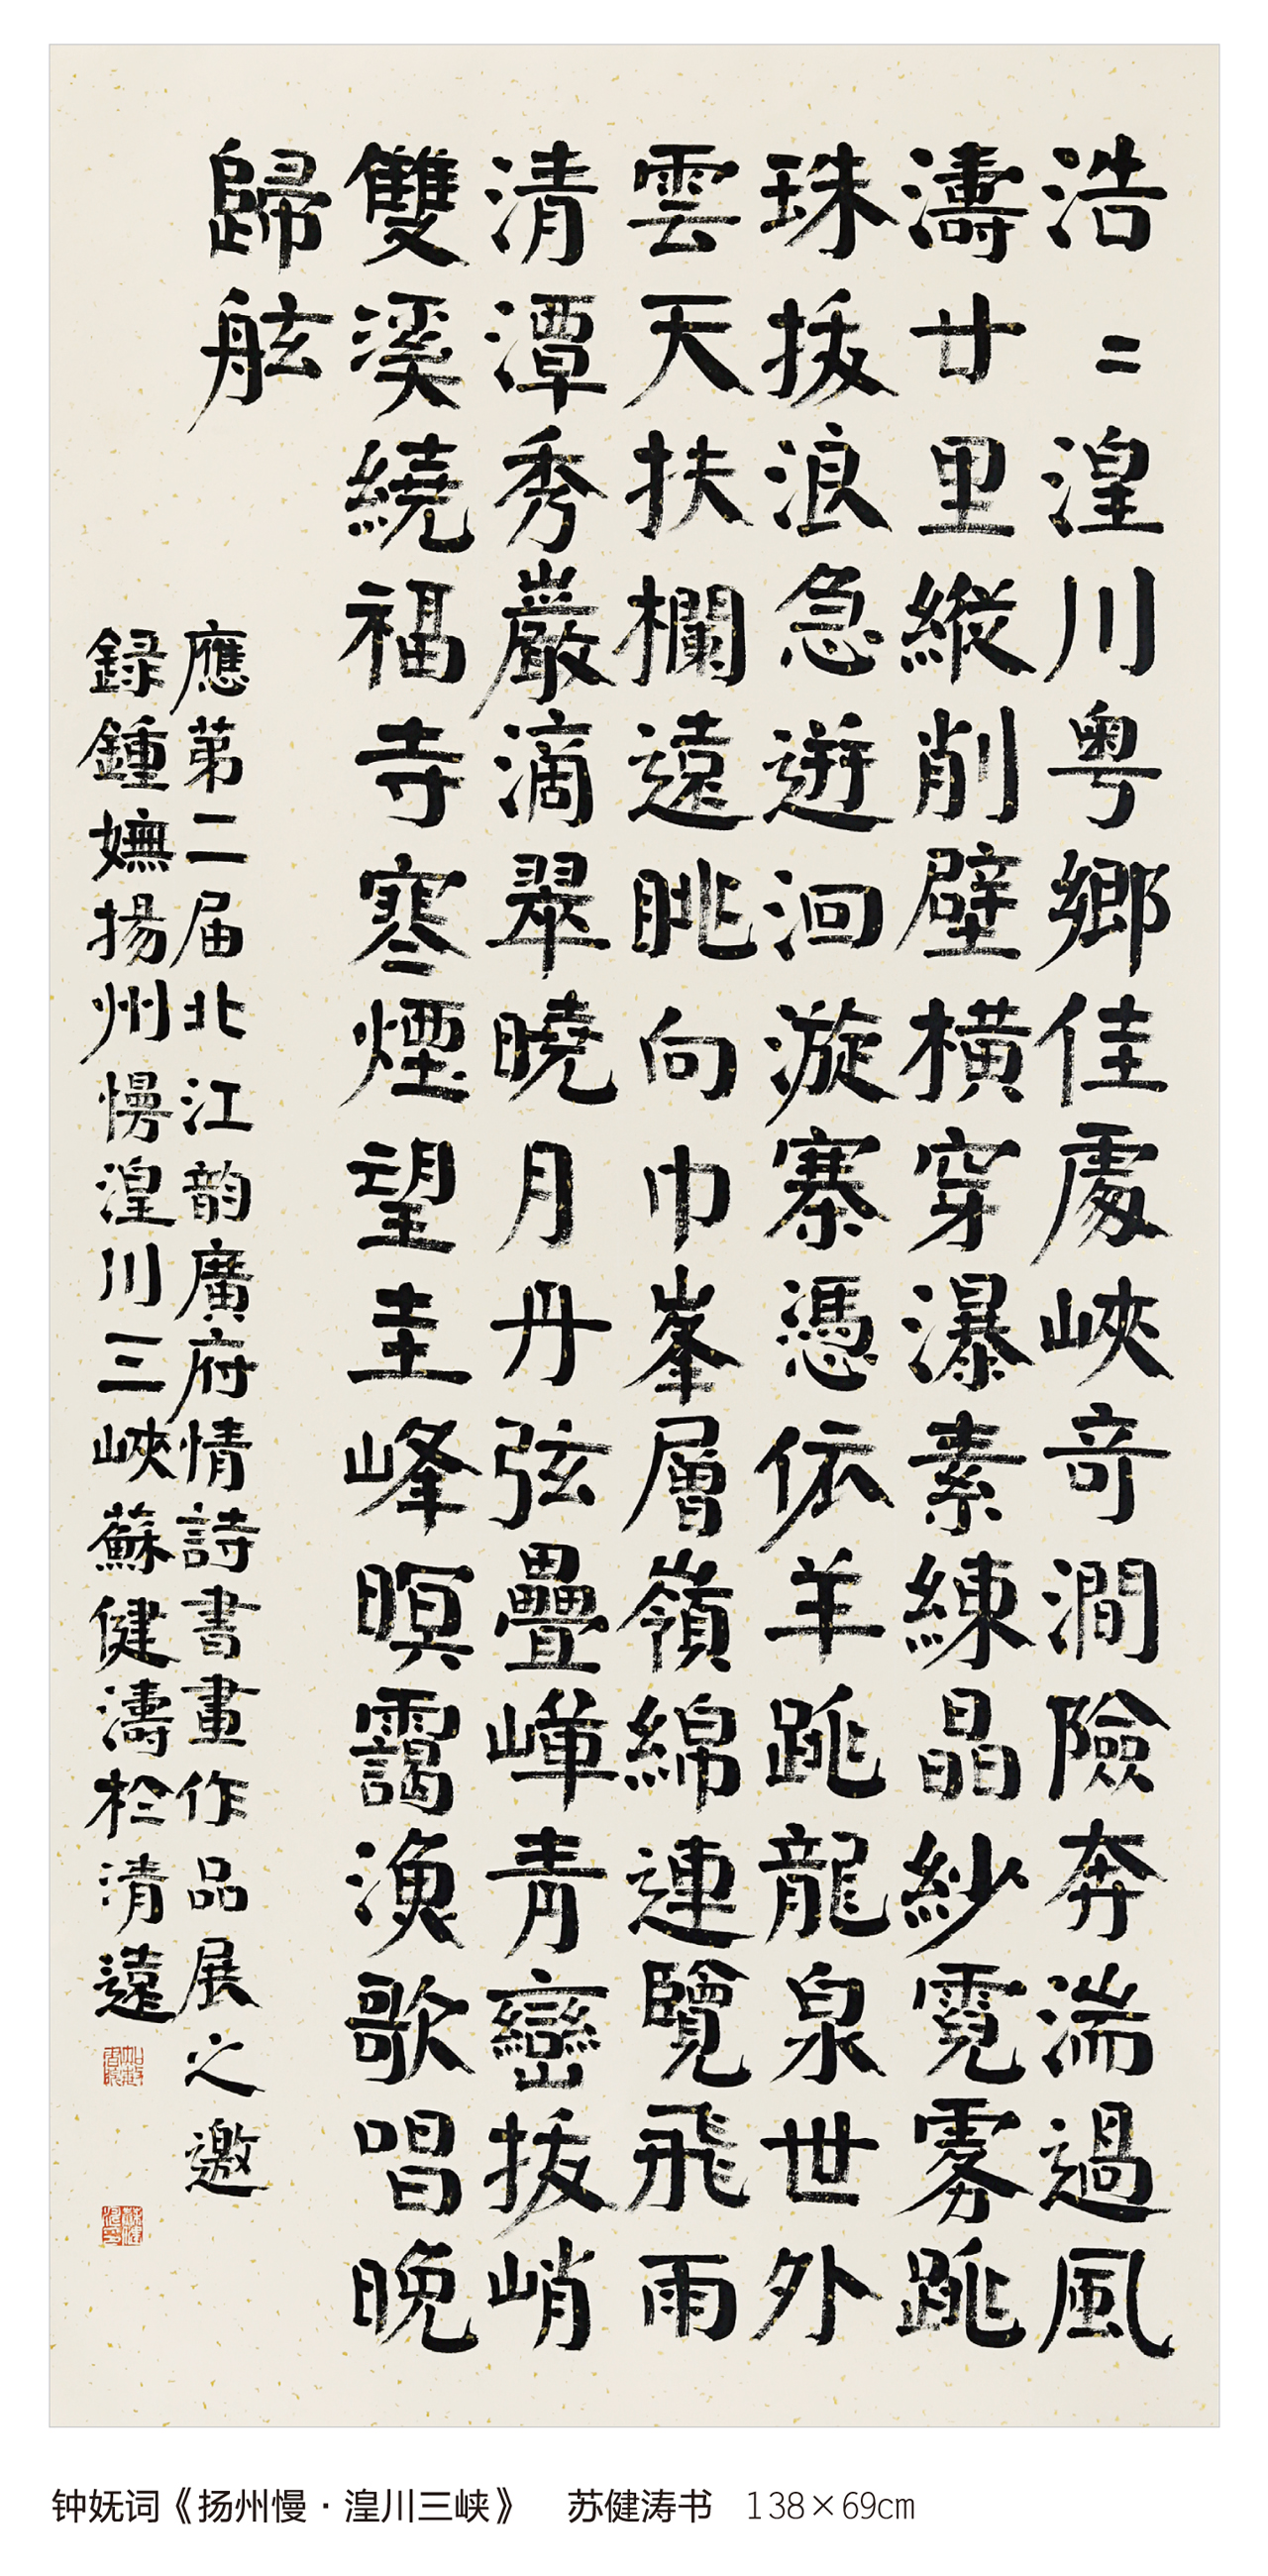 浩〻湟川粤鄉佳處峽竒澗險奔湍過風
濤廿里縱削壁橫穿瀑素練晶紗霓霧跳
珠拔浪急逰洄漩寨憑依羊跳龍泉世外
雲天扶欄遠眺向巾峯層嶺綿連覽飛雨
清潭秀巖滴翠曉月丹弦疊嶂青巒拔峭
雙溪繞福寺寒煙望圭峰暝靄漁歌唱晚
歸舷
應苐二届北江韵廣府情詩書畫作品展之邀
録鍾嫵揚州慢湟川三峽蘇健濤於清遠
钟妩词《扬州慢·湟川三峡》 苏健涛书 138×69cm